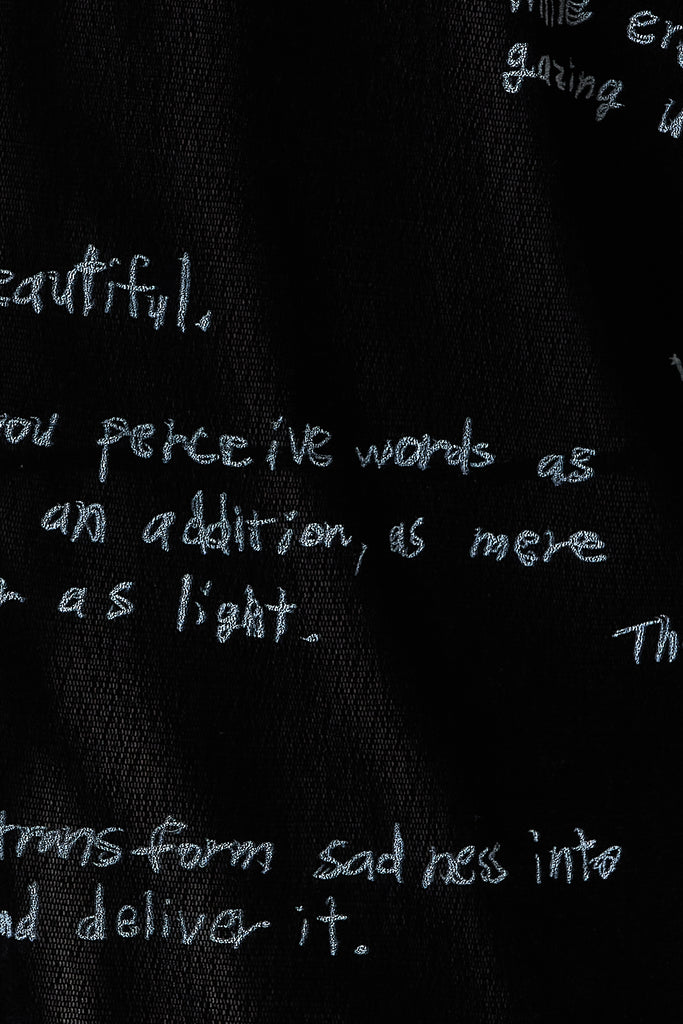 gazing
eautiful.
you perceive words as
an addition, as mere
as light.
Th
transform sadness into
nd deliver it.